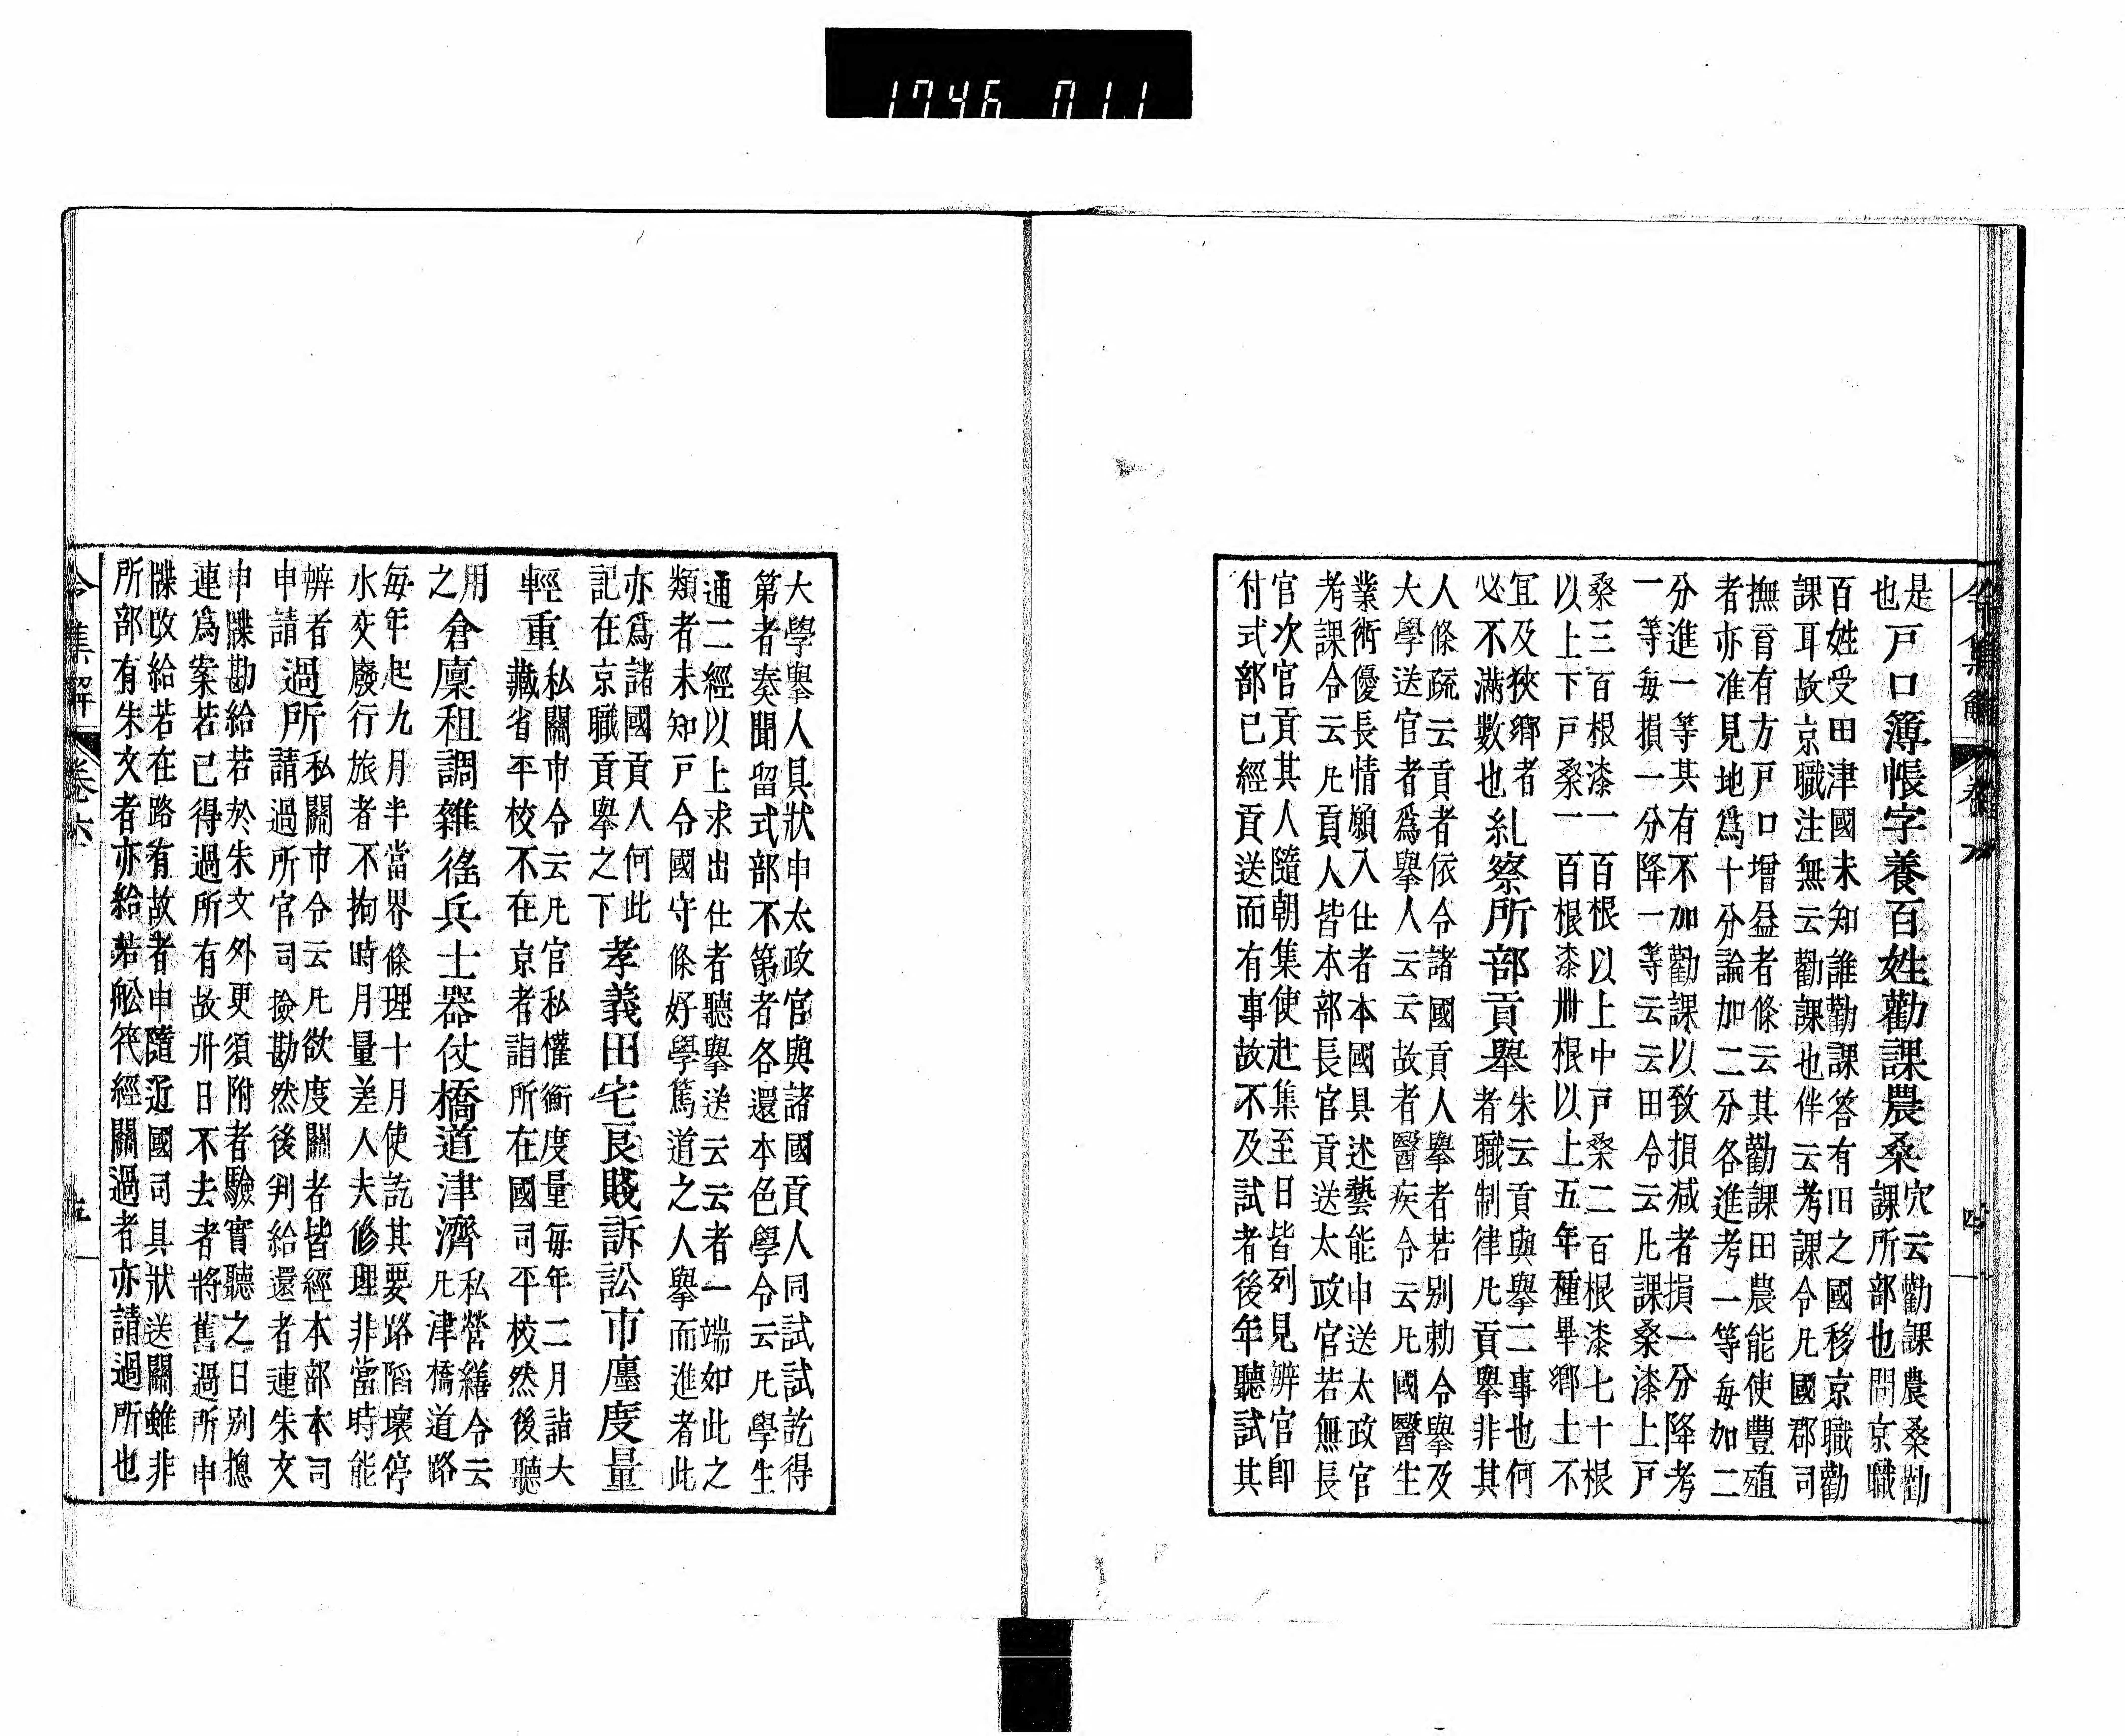 1746 011
令集解 卷六 四
是
也
戸口簿帳字養百姓勸課農桑
穴云勸課農桑勸
課所部也問京職
百姓受田津國未知誰勸課答有旧之國移京職勸
課耳故京職注無云勸課也伴云考課令凡國郡司
撫育有方戸口增益者條云其勸課田農能使豐殖
者亦准見地爲十分論加二分各進考一等毎加二
分進一等其有不加勸課以致損减者損一分降考
一等毎損一分降一等云云田令云凡課桑漆上戸
桑三百根漆一百根以上中戸桑二百根漆七十根
以上下戸桑一百根漆卌根以上五年種畢郷土不
冝及狹郷者
必不滿數也
糺察所部貢擧
朱云貢與擧二事也何
者職制律凡貢擧非其
人條疏云貢者依令諸國貢人擧者若別勅令擧及
大學送官者爲擧人云云故者醫疾令云凡國醫生
業術優長情願入仕者本國具述藝能申送太政官
考課令云凡貢人皆本部長官貢送太政官若無長
官次官貢其人隨朝集使赴集至日皆列見辨官即
付式部已經貢送而有事故不及試者後年聽試其
大學擧人具狀申太政官與諸國貢人同試試訖得
第者奏聞留式部不第者各還本色學令云凡學生
通二經以上求出仕者聽擧送云云者一端如此之
類者未知戸令國守條好學篤道之人擧而進者此
亦爲諸國貢人何此
記在京職貢擧之下
孝義田宅良賤訴訟市廛度量
輕重
私關市令云凡官私權衡度量毎年二月詣大
藏省平校不在京者詣所在國司平校然後聽
用
之
倉廩租調雜徭兵士器仗橋道津濟
私營繕令云
凡津橋道路
毎年起九月半當界條理十月使訖其要路陷壞停
水交廢行旅者不拘時月量差人夫修理非當時能
辨者
申請
過所
私關市令云凡欲度關者皆經本部本司
請過所官司撿勘然後判給還者連朱文
申牒勘給若於朱文外更須附者驗實聽之日別摠
連爲案若已得過所有故卅日不去者將舊過所申
牒改給若在路有故者申隨近國司具狀送關雖非
所部有朱文者亦給若舩筏經關過者亦請過所也
令集解 卷六 五